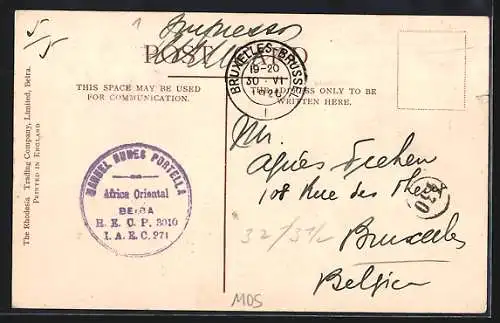 1
5/5
Impresso
POST CARD
THIS SPACE MAY BE USED
FOR COMMUNICATION.
THE ADDRESS ONLY TO BE
WRITTEN HERE.
BRUXELLES-BRUSSEL
19-20
30 VI
1
The Rhodesia Trading Company, Limited, Beira.
PRINTED IN ENGLAND
MANUEL NUNES PORTELLA
África Oriental
BEIRA
H. E. C. P. 3010
I. A. E. C. 971
Mr.
108 Rue des
330
Bruxelles
Belgien
MOS